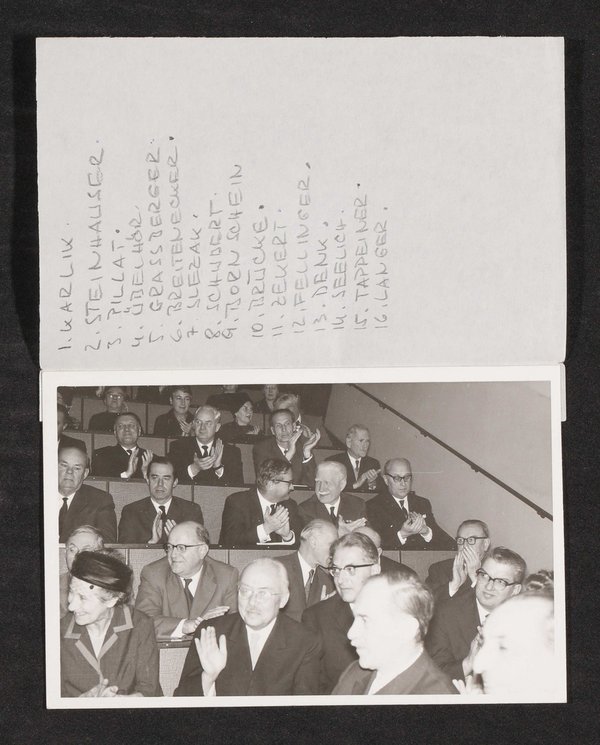 1. KARLIK.
2. STEINHAUSER.
3. PILLAT.
4. ÜBELHÖR.
5. GRASSBERGER.
6. BREITENECKER.
7 SLEZAK.
8. SCHUBERT.
9. BORNSCHEIN
10. BRÜCKE.
11. ZEKERT.
12. FELLINGER.
13. DENK.
14. SEELICH.
15. TAPPEINER.
16. LANGER.